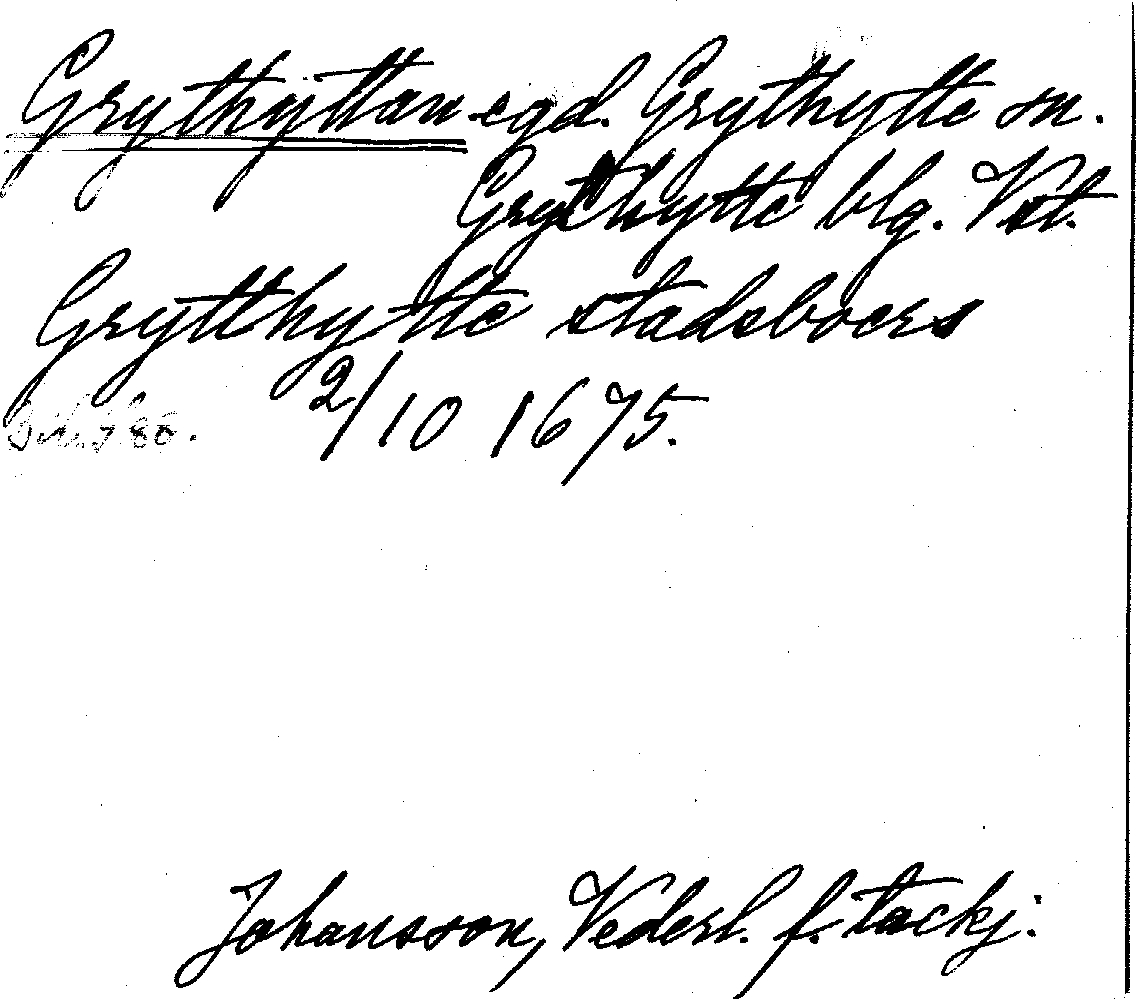 Grythyttan egd. Grythytte sn.
Grythytte blg. Vstl.
Grytthytte stadsboers
2/10 1675.
Johansson, Vederl. f. tackj: